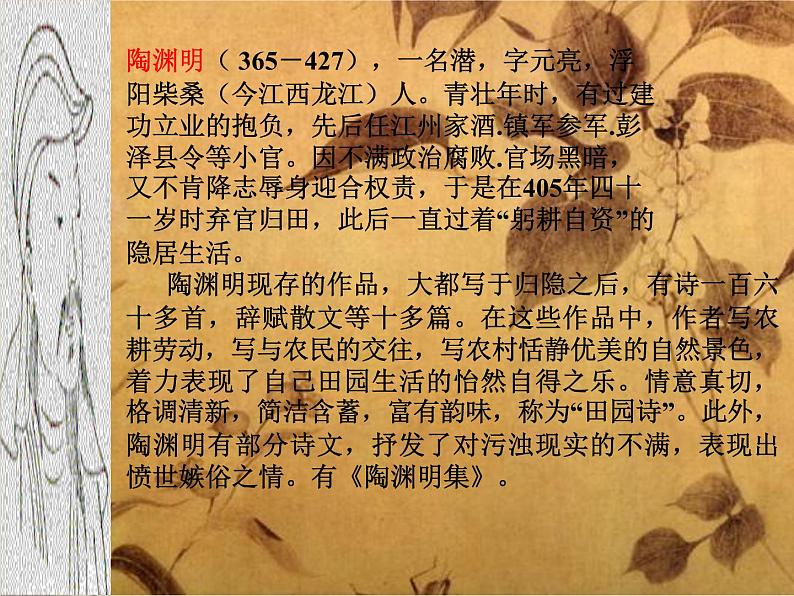 陶渊明（ 365－427），一名潜，字元亮，浮
阳柴桑（今江西龙江）人。青壮年时，有过建
功立业的抱负，先后任江州家酒.镇军参军.彭
泽县令等小官。因不满政治腐败.官场黑暗，
又不肯降志辱身迎合权责，于是在405年四十
一岁时弃官归田，此后一直过着“躬耕自资”的
隐居生活。
陶渊明现存的作品，大都写于归隐之后，有诗一百六
十多首，辞赋散文等十多篇。在这些作品中，作者写农
耕劳动，写与农民的交往，写农村恬静优美的自然景色，
着力表现了自己田园生活的怡然自得之乐。情意真切，
格调清新，简洁含蓄，富有韵味，称为“田园诗”。此外，
陶渊明有部分诗文，抒发了对污浊现实的不满，表现出
愤世嫉俗之情。有《陶渊明集》。